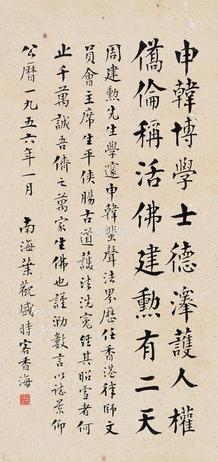 申韓博學士德澤護人權
僑倫稱活佛建勳有二天
周建勳先生學邃申韓蜚聲法界歷任香港律師文
員會主席生平俠腸古道護法洗冤經其昭雪者何
止千萬誠吾儕之萬家生佛也謹勒數言以誌景仰
公曆一九五六年一月 南海葉觀盛時客香海